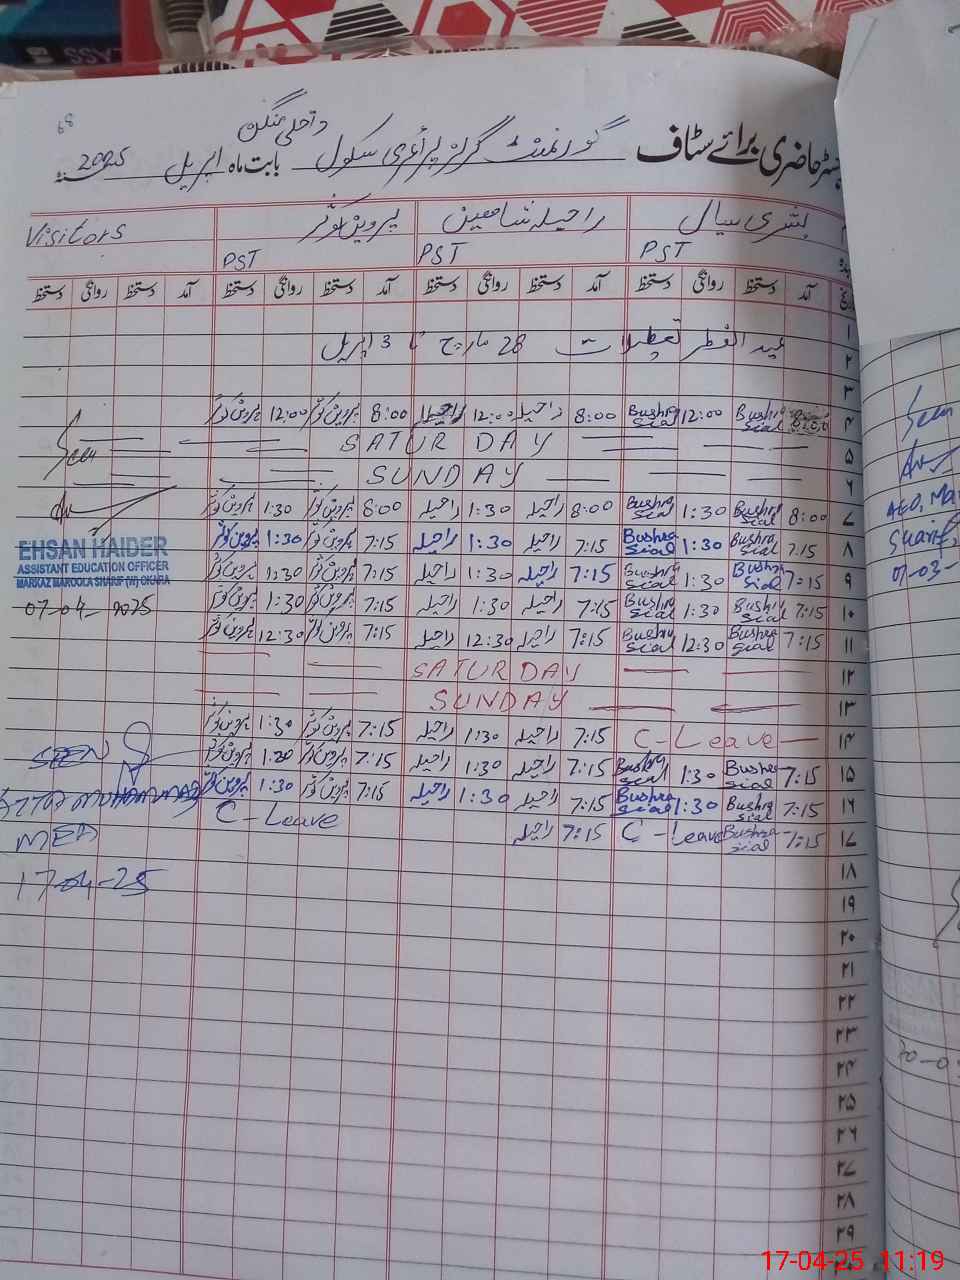 رجسٹر حاضری برائے سٹاف گورنمنٹ گرلز پرائمری سکول داخلی بابت ماہ اپریل سنہ 2025
بشری سیال راحیلہ شاھین پروین کوثر Visitors
PST PST PST
تاریخ آمد دستخط روانگی دستخط آمد دستخط روانگی دستخط آمد دستخط روانگی دستخط آمد دستخط روانگی دستخط
۱
۲ عید الفطر تعطیلات 28 مارچ تا 3 اپریل
۳
۴ Bushra Sial 12:00 Bushra Sial 8:00 راحیلہ 12:00 راحیلہ 8:00 پروین کوثر 12:00 پروین کوثر
۵ SATUR DAY Seen
۶ SUNDAY
۷ 8:00 Bushra Sial 1:30 Bushra Sial 8:00 راحیلہ 1:30 راحیلہ 8:00 پروین کوثر 1:30 پروین کوثر
۸ 7:15 Bushra Sial 1:30 Bushra Sial 7:15 راحیلہ 1:30 راحیلہ 7:15 پروین کوثر 1:30 پروین کوثر
EHSAN HAIDER
ASSISTANT EDUCATION OFFICER
MARKAZ MAROOLA SHARIF (W) OKARA
07-04-2025
۹ 7:15 Bushra Sial 1:30 Bushra Sial 7:15 راحیلہ 1:30 راحیلہ 7:15 پروین کوثر 1:30 پروین کوثر
۱۰ 7:15 Bushra Sial 1:30 Bushra Sial 7:15 راحیلہ 1:30 راحیلہ 7:15 پروین کوثر 1:30 پروین کوثر
۱۱ 7:15 Bushra Sial 12:30 Bushra Sial 7:15 راحیلہ 12:30 راحیلہ 7:15 پروین کوثر 12:30 پروین کوثر
۱۲ SATURDAY
۱۳ SUNDAY
۱۴ C-Leave 7:15 راحیلہ 1:30 راحیلہ 7:15 پروین کوثر 1:30 پروین کوثر
۱۵ 7:15 Bushra Sial 1:30 Bushra Sial 7:15 راحیلہ 1:30 راحیلہ 7:15 پروین کوثر 1:30 پروین کوثر
۱۶ 7:15 Bushra Sial 1:30 Bushra Sial 7:15 راحیلہ 1:30 راحیلہ 7:15 پروین کوثر 1:30 پروین کوثر
۱۷ 7:15 Bushra Sial C-Leave 7:15 راحیلہ C-Leave
SEEN
MUHAMMAD
MEA
17-04-25
۱۸
۱۹
۲۰
۲۱
۲۲
۲۳
۲۴
۲۵
۲۶
۲۷
۲۸
۲۹
Seen
AEO, Ma
Sharif
07-03-
17-04-25 11:19